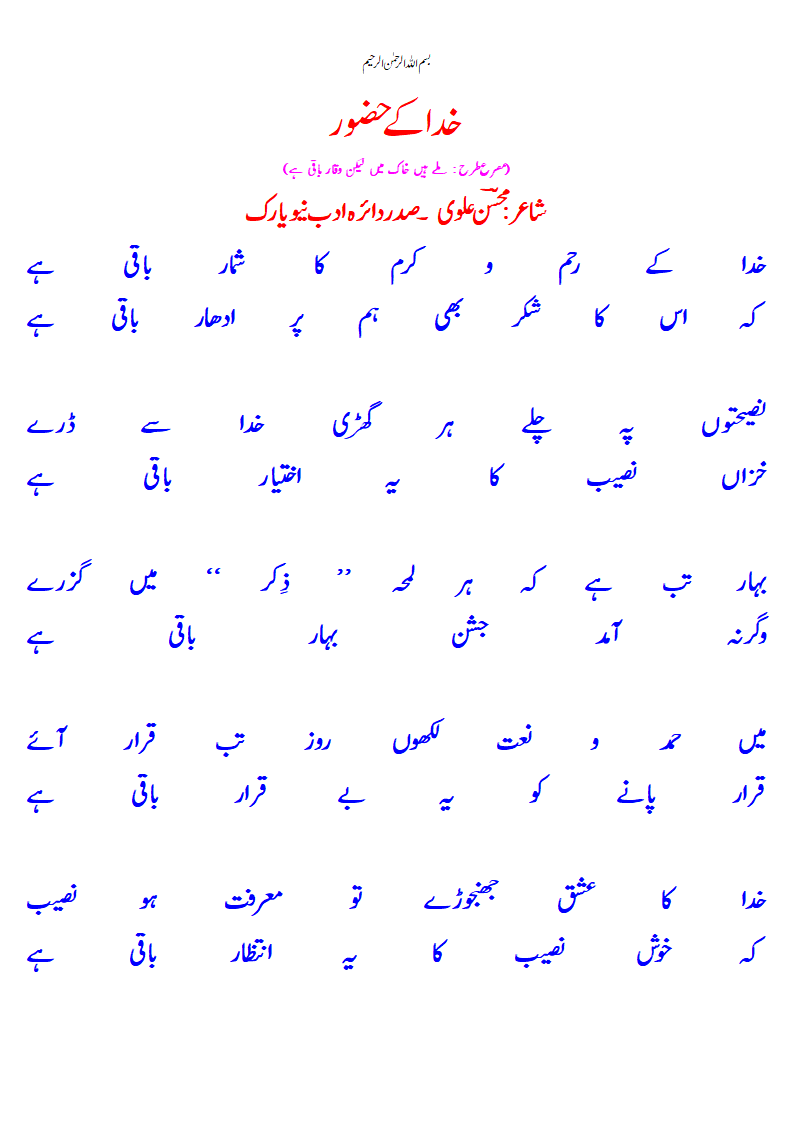 بسم اللہ الرحمٰن الرحیم
خدا کے حضور
(مصرع طرح: ملے ہیں خاک میں لیکن وقار باقی ہے)
شاعر: محسنؔ علوی ۔ صدر دائرہ ادب نیویارک
خدا کے رحم و کرم کا شمار باقی ہے
کہ اس کا شکر بھی ہم پر ادھار باقی ہے
نصیحتوں پہ چلے ہر گھڑی خدا سے ڈرے
خزاں نصیب کا یہ اختیار باقی ہے
بہار تب ہے کہ ہر لمحہ ’’ ذِکر ‘‘ میں گزرے
وگرنہ آمد جشن بہار باقی ہے
میں حمد و نعت لکھوں روز تب قرار آئے
قرار پانے کو یہ بے قرار باقی ہے
خدا کا عشق جھنجوڑے تو معرفت ہو نصیب
کہ خوش نصیب کا یہ انتظار باقی ہے